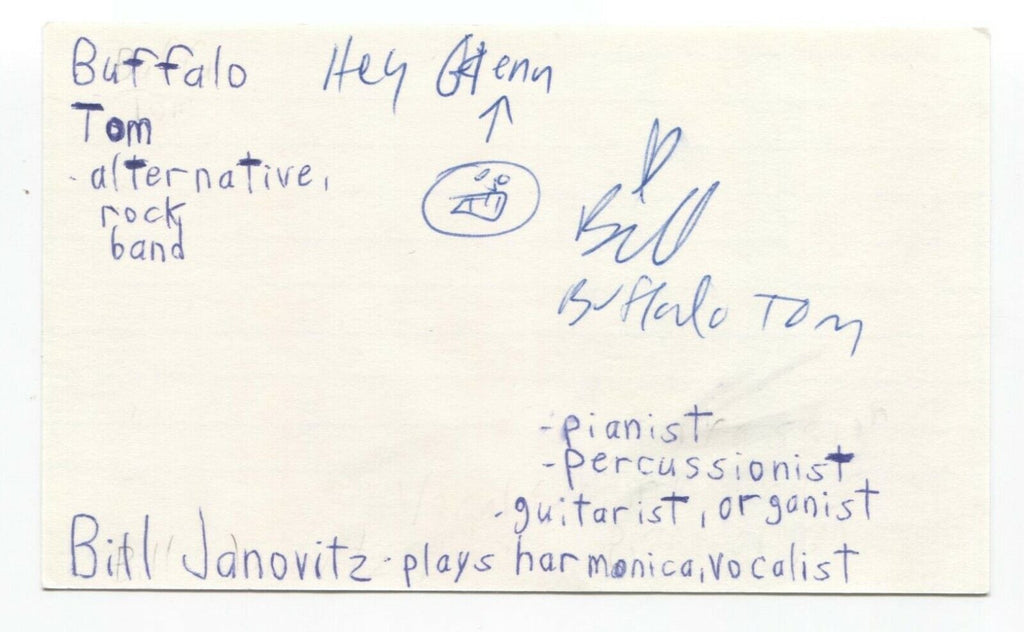 Buffalo
Tom
- alternative,
rock
band
Hey Glenn
Bill
Buffalo Tom
-pianist
-percussionist
-guitarist, organist
Bill Janovitz - plays harmonica, vocalist